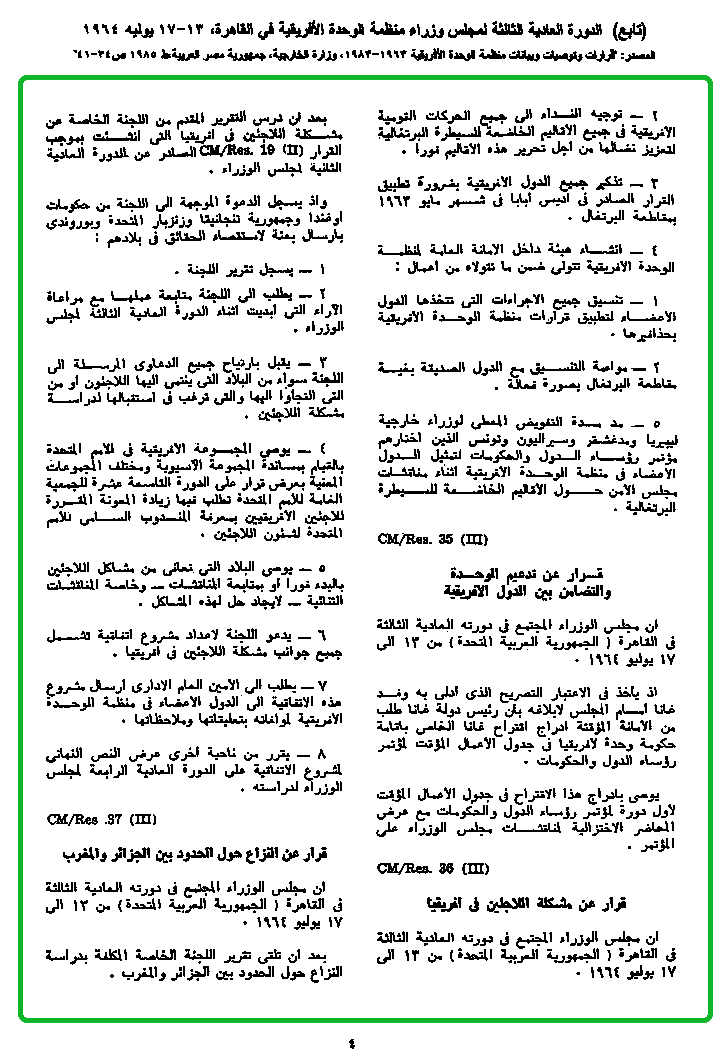 (تابع) الدورة العادية الثالثة لمجلس وزراء منظمة الوحدة الأفريقية في القاهرة، ١٣-١٧ يوليه ١٩٦٤
المصدر: "قرارات وتوصيات وبيانات منظمة الوحدة الأفريقية ١٩٦٣-١٩٨٣، وزارة الخارجية، جمهورية مصر العربية، ط ١٩٨٥ ص ٣٤-٦٤١
٢ — توجيه النداء الى جميع الحركات القومية
الافريقية فى جميع الاقاليم الخاضعة للسيطرة البرتغالية
لتعزيز نضالها من أجل تحرير هذه الاقاليم فورا .
٣ — تذكير جميع الدول الافريقية بضرورة تطبيق
القرار الصادر فى اديس أبابا فى شهر مايو ١٩٦٣
بمقاطعة البرتغال .
٤ — انشاء هيئة داخل الامانة العامة لمنظمة
الوحدة الافريقية تتولى ضمن ما تتولاه من أعمال :
١ — تنسيق جميع الاجراءات التى تتخذها الدول
الاعضاء لتطبيق قرارات منظمة الوحدة الافريقية
بحذافيرها .
٢ — مواصلة التنسيق مع الدول الصديقة بغية
مقاطعة البرتغال بصورة فعالة .
٥ — مد مدة التفويض المعطى لوزراء خارجية
ليبيريا ومدغشقر وسيراليون وتونس الذين اختارهم
مؤتمر رؤساء الدول والحكومات لتمثيل الدول
الاعضاء فى منظمة الوحدة الافريقية اثناء مناقشات
مجلس الأمن حول الأقاليم الخاضعة للسيطرة
البرتغالية .
CM/Res. 35 (III)
قرار عن تدعيم الوحدة
والتضامن بين الدول الافريقية
ان مجلس الوزراء المجتمع فى دورته العادية الثالثة
فى القاهرة ( الجمهورية العربية المتحدة ) من ١٣ الى
١٧ يوليو ١٩٦٤ ٠
اذ يأخذ فى الاعتبار التصريح الذى أدلى به وفد
غانا أمام المجلس لابلاغه بأن رئيس دولة غانا طلب
من الأمانة المؤقتة ادراج اقتراح غانا الخاص باقامة
حكومة وحدة لافريقيا فى جدول الأعمال المؤقت لمؤتمر
رؤساء الدول والحكومات ٠
يوصى بادراج هذا الاقتراح فى جدول الأعمال المؤقت
لأول دورة لمؤتمر رؤساء الدول والحكومات مع عرض
المحاضر الاختزالية لمناقشات مجلس الوزراء على
المؤتمر .
CM/Res. 36 (III)
قرار عن مشكلة اللاجئين فى افريقيا
ان مجلس الوزراء المجتمع فى دورته العادية الثالثة
فى القاهرة ( الجمهورية العربية المتحدة ) من ١٣ الى
١٧ يوليو ١٩٦٤ ٠
بعد ان درس التقرير المقدم من اللجنة الخاصة عن
مشكلة اللاجئين فى افريقيا التى انشئت بموجب
القرار CM/Res. 19 (II) الصادر عن الدورة العادية
الثانية لمجلس الوزراء .
واذ يسجل الدعوة الموجهة الى اللجنة من حكومات
اوغندا وجمهورية تنجانيقا وزنزبار المتحدة وبوروندى
بارسال بعثة لاستقصاء الحقائق فى بلادهم :
١ — يسجل تقرير اللجنة .
٢ — يطلب الى اللجنة متابعة عملها مع مراعاة
الآراء التى أبديت اثناء الدورة العادية الثالثة لمجلس
الوزراء .
٣ — يقبل بارتياح جميع الدعاوى المرسلة الى
اللجنة سواء من البلاد التى ينتمى اليها اللاجئون او من
التى التجأوا اليها والتى ترغب فى استقبالها لدراسة
مشكلة اللاجئين .
٤ — يوصى المجموعة الافريقية فى الأمم المتحدة
بالقيام بمساندة المجموعة الآسيوية ومختلف المجموعات
المعنية بعرض قرار على الدورة التاسعة عشرة للجمعية
العامة للأمم المتحدة تطلب فيها زيادة المعونة المقررة
للاجئين الافريقيين بمعرفة المندوب السامى للأمم
المتحدة لشئون اللاجئين ٠
٥ — يوصى البلاد التى تعانى من مشاكل اللاجئين
بالبدء فورا أو بمتابعة المناقشات — وخاصة المناقشات
الثنائية — لايجاد حل لهذه المشاكل .
٦ — يدعو اللجنة لاعداد مشروع اتفاقية تشمل
جميع جوانب مشكلة اللاجئين فى افريقيا .
٧ — يطلب الى الأمين العام الادارى ارسال مشروع
هذه الاتفاقية الى الدول الاعضاء فى منظمة الوحدة
الافريقية لموافاته بتعليقاتها وملاحظاتها .
٨ — يقرر من ناحية أخرى عرض النص النهائى
لمشروع الاتفاقية على الدورة العادية الرابعة لمجلس
الوزراء لدراسته .
CM/Res .37 (III)
قرار عن النزاع حول الحدود بين الجزائر والمغرب
ان مجلس الوزراء المجتمع فى دورته العادية الثالثة
فى القاهرة ( الجمهورية العربية المتحدة ) من ١٣ الى
١٧ يوليو ١٩٦٤ ٠
بعد ان تلقى تقرير اللجنة الخاصة المكلفة بدراسة
النزاع حول الحدود بين الجزائر والمغرب .
٤